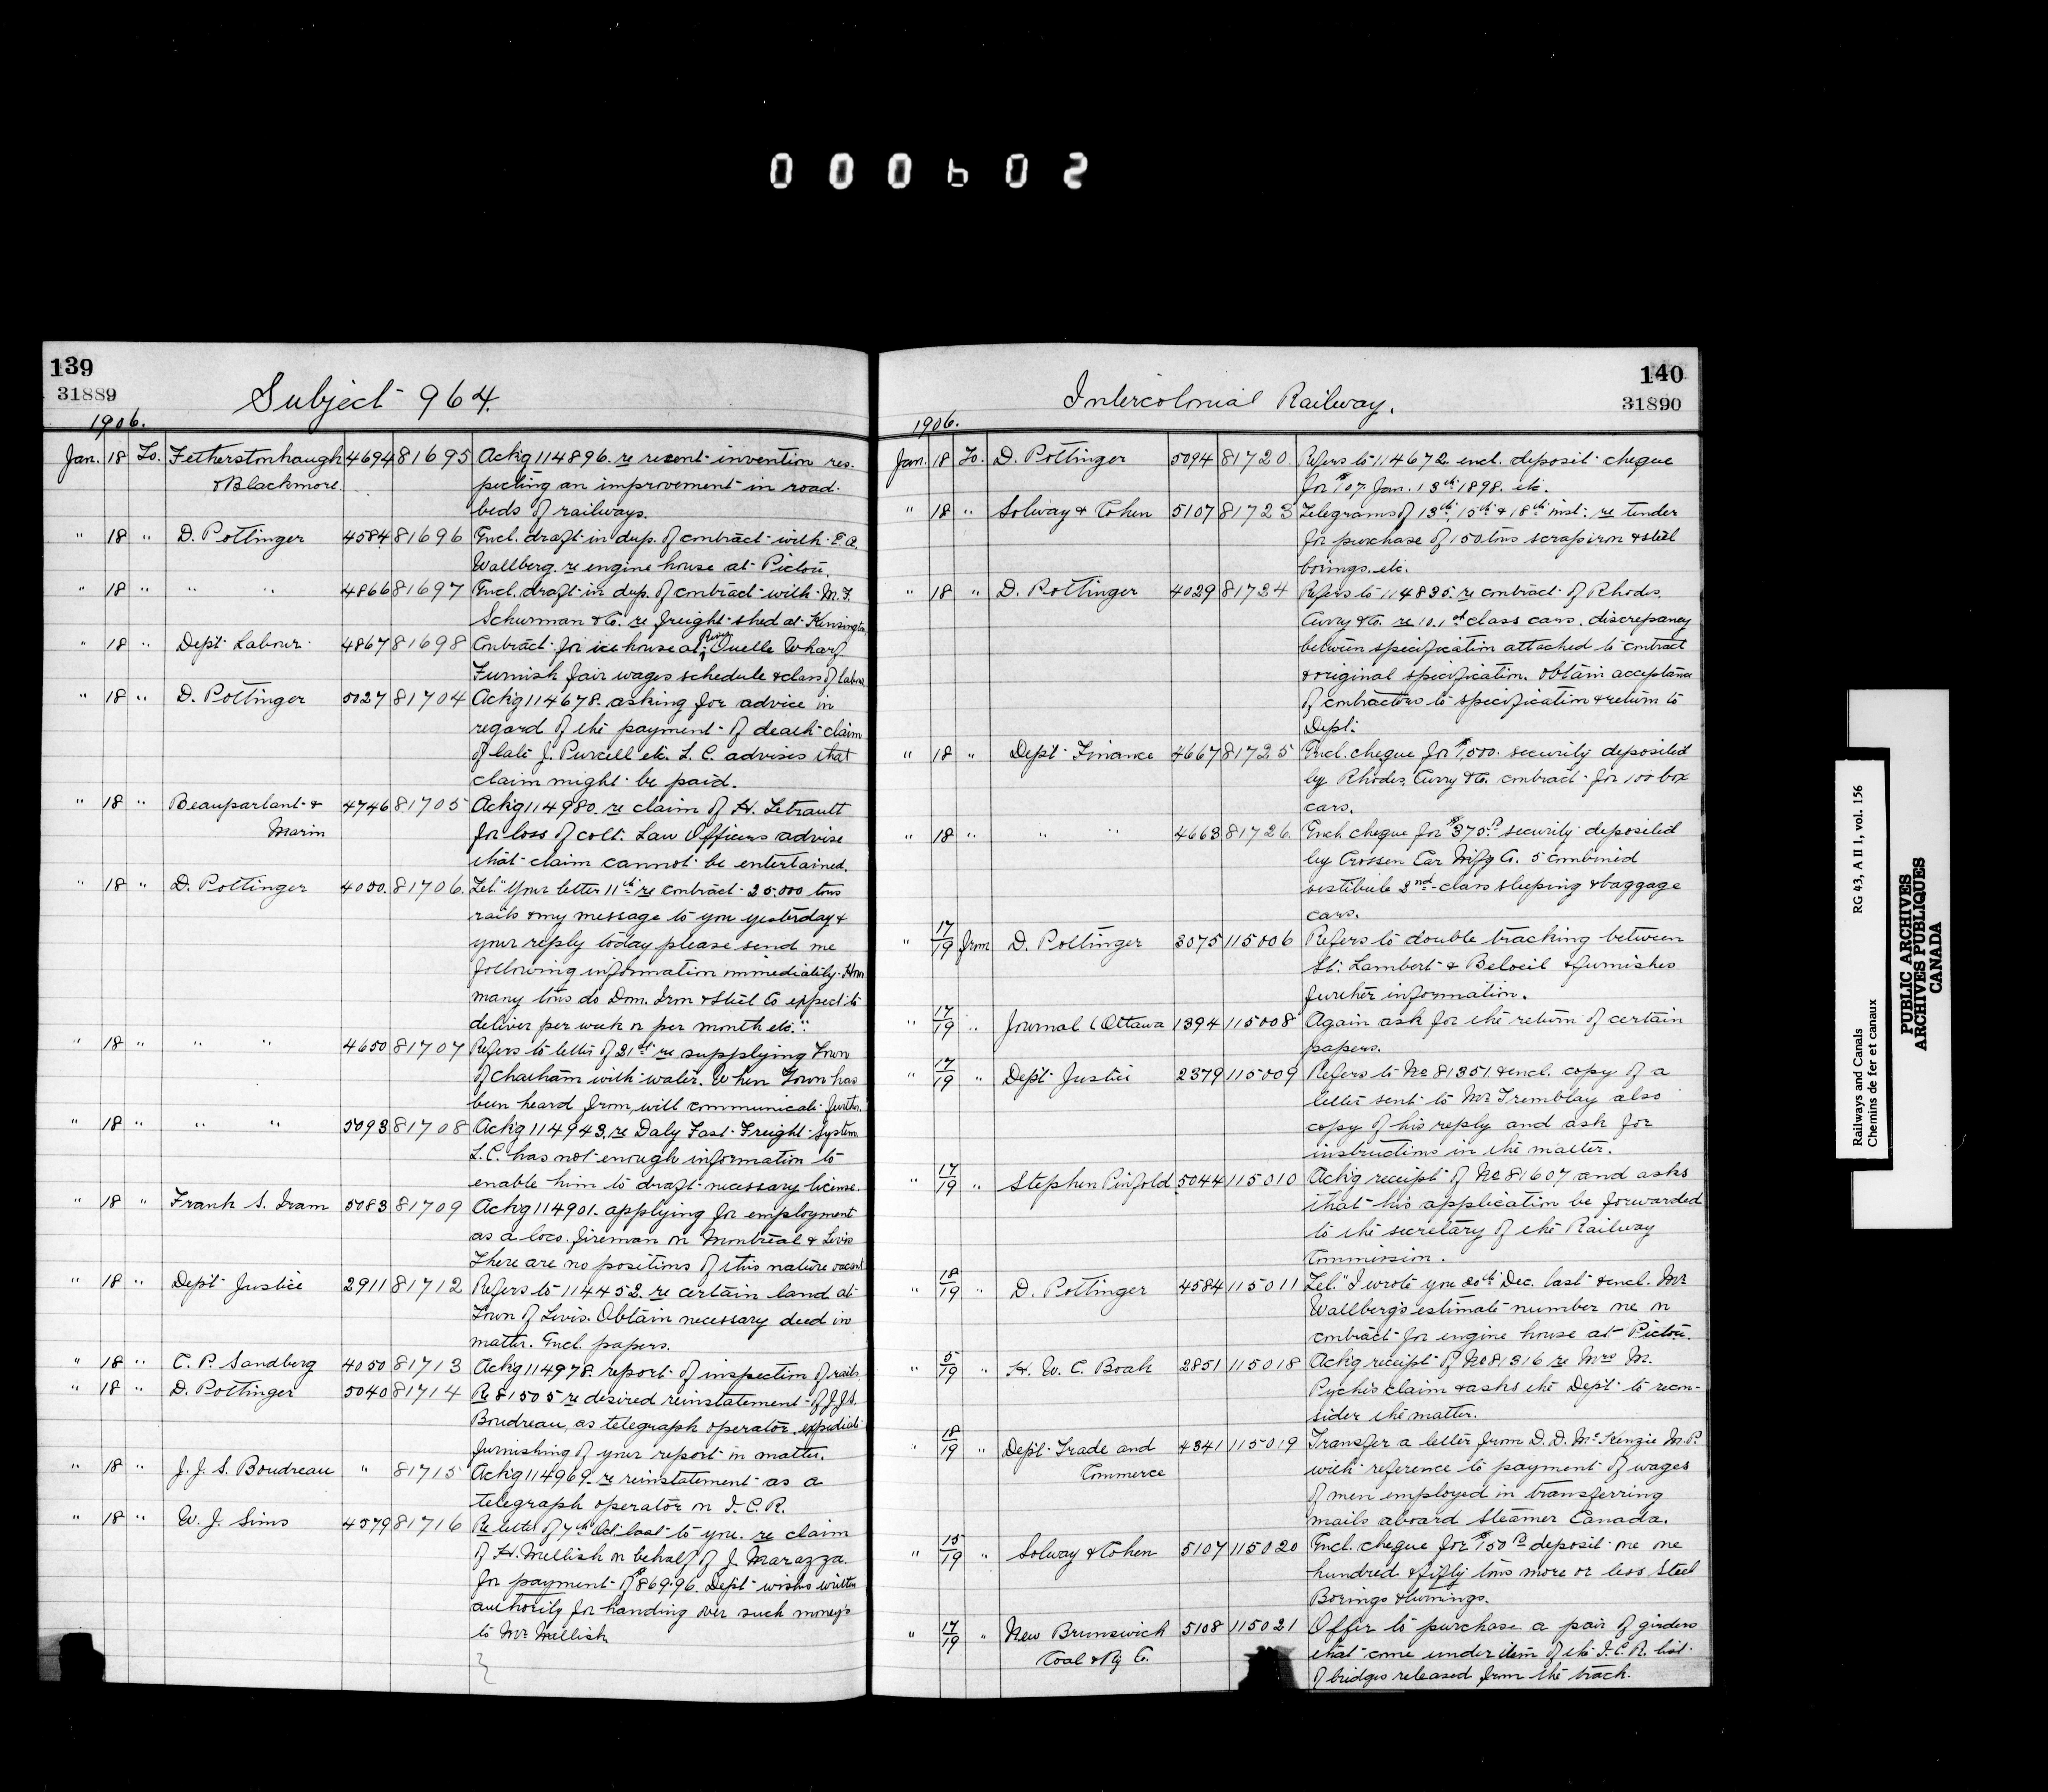 000602
139
31889
Subject 964.
1906.
Jan. 18 To. Fetherstonhaugh 4694 81695 Ackg 114896. re recent invention res-
& Blackmore. pecting an improvement in road-
beds of railways.
" 18 " D. Pottinger 4584 81696 Encl. draft in dup. of contract with E. A.
Wallberg. re engine house at Pictou.
" 18 " " " 4866 81697 Encl. draft in dup. of contract with M. F.
Schurman & Co. re freight shed at Kensington
" 18 " Dept Labour 4867 81698 Contract for ice house at River Ouelle Wharf
Furnish fair wages schedule & class of labour
" 18 " D. Pottinger 5027 81704 Ackg 114678. asking for advice in
regard of the payment of death claim
of late J. Purcell etc. L. C. advises that
claim might be paid.
" 18 " Beauparlant & 4746 81705 Ackg 114980. re claim of H. Tetrault
Marin for loss of colt. Law Officers advise
that claim cannot be entertained.
" 18 " D. Pottinger 4050. 81706. Tel. "Your letter 11th re contract 25.000 tons
rails & my message to you yesterday &
your reply today please send me
following information immediately. How
many tons do Dom. Iron & Steel Co expect to
deliver per week or per month etc."
" 18 " " " 4650 81707 Refers to letter of 21st re supplying Town
of Chatham with water. When Town has
been heard from, will communicate further.
" 18 " " " 5093 81708 Ackg 114943. re Daly Fast Freight System
L. C. has not enough information to
enable him to draft necessary license.
" 18 " Frank S. Iram 5083 81709 Ackg 114901. applying for employment
as a loco. fireman on Montreal & Levis
There are no positions of this nature vacant
" 18 " Dept Justice 2911 81712 Refers to 114452. re certain land at
Town of Levis. Obtain necessary deed in
matter. Encl. papers.
" 18 " C. P. Sandberg 4050 81713 Ackg 114978. report of inspection of rails
" 18 " D. Pottinger 5040 81714 Re 81505 re desired reinstatement of J.J.S.
Boudreau, as telegraph operator, expedite
furnishing of your report in matter.
" 18 " J. J. S. Boudreau " 81715 Ackg 114969. re reinstatement as a
telegraph operator on I. C. R.
" 18 " W. J. Sims 4579 81716 Re letter of 7th Oct. last to you. re claim
of H. Mellish on behalf of J. Marazza.
for payment of $869.96. Dept wishes written
authority for handing over such money's
to Mr Mellish
140
31890
Intercolonial Railway.
1906.
Jan. 18 To. D. Pottinger 5094 81720. Refers to 114672. encl. deposit cheque
for $107. Jan. 13th 1898. etc.
" 18 " Solway & Cohen 5107 81723 Telegrams of 13th, 15th & 18th inst. re tender
for purchase of 150 tons scrap iron & steel
borings. etc.
" 18 " D. Pottinger 4029 81724 Refers to 114835. re contract of Rhodes,
Curry & Co. re 10. 1st class cars. discrepancy
between specification attached to contract
& original specification. Obtain acceptance
of contractors to specification & return to
Dept.
" 18 " Dept Finance 4667 81725 Encl. cheque for $1,500. security deposited
by Rhodes, Curry & Co. contract for 100 box
cars.
" 18 " " " 4663 81726. Encl. cheque for $375.00 security deposited
by Crossen Car Mnfg Co. 5 combined
vestibule 2nd class sleeping & baggage
cars.
" 17/19 from D. Pottinger 3075 115006 Refers to double tracking between
St. Lambert & Beloeil & furnishes
further information.
" 17/19 " Journal (Ottawa 1394 115008 Again ask for the return of certain
papers.
17/19 " Dept Justice 2379 115009 Refers to No 81351 & encl. copy of a
letter sent to Mr Tremblay also
copy of his reply and ask for
instructions in the matter.
" 17/19 " Stephen Pinfold 5044 115010 Ackg receipt of No 81607 and asks
that his application be forwarded
to the secretary of the Railway
Commission.
" 18/19 " D. Pottinger 4584 115011 Tel. "I wrote you 20th Dec. last & encl. Mr
Wallberg's estimate number one on
contract for engine house at Pictou.
" 5/19 " H. W. C. Boak 2851 115018 Ackg receipt of No 81316 re Mrs M.
Pyche's claim & asks the Dept to recon-
sider the matter.
" 18/19 " Dept Trade and 4341 115019 Transfer a letter from D. D. McKenzie M.P.
Commerce with reference to payment of wages
of men employed in transferring
mails aboard Steamer Canada.
" 15/19 " Solway & Cohen 5107 115020 Encl. cheque for $150.00 deposit one one
hundred & fifty tons more or less Steel
Borings & turnings.
" 17/19 " New Brunswick 5108 115021 Offer to purchase a pair of girders
Coal & Ry Co. that come under item of the I. C. R. list
of bridges released from the track.
Railways and Canals RG 43, A II 1, vol. 156
Chemins de fer et canaux
PUBLIC ARCHIVES
ARCHIVES PUBLIQUES
CANADA